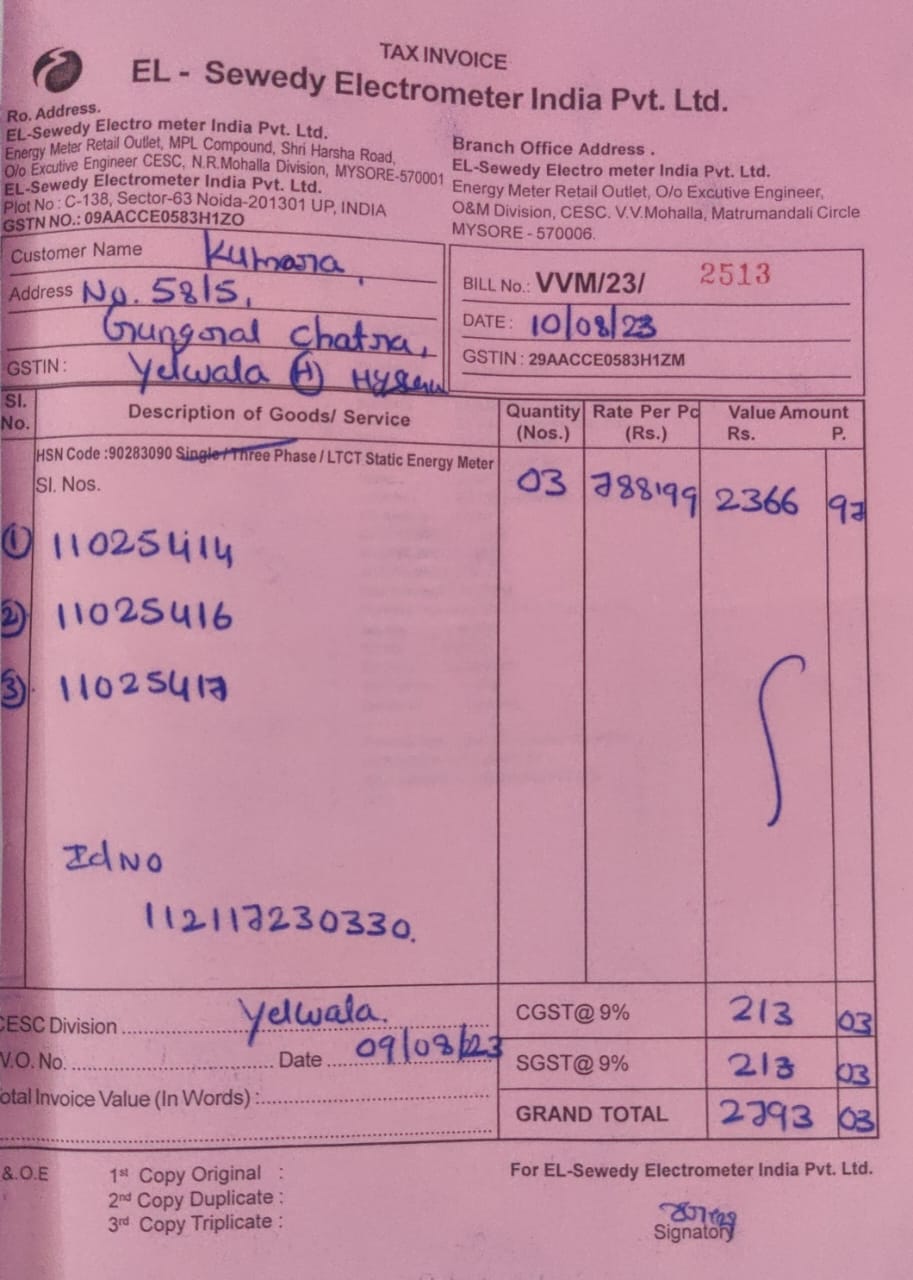 TAX INVOICE
EL - Sewedy Electrometer India Pvt. Ltd.
Ro. Address.
EL-Sewedy Electro meter India Pvt. Ltd.
Energy Meter Retail Outlet, MPL Compound, Shri Harsha Road,
O/o Excutive Engineer CESC, N.R.Mohalla Division, MYSORE-570001
EL-Sewedy Electrometer India Pvt. Ltd.
Plot No : C-138, Sector-63 Noida-201301 UP, INDIA
GSTN NO.: 09AACCE0583H1ZO
Branch Office Address .
EL-Sewedy Electro meter India Pvt. Ltd.
Energy Meter Retail Outlet, O/o Excutive Engineer,
O&M Division, CESC. V.V.Mohalla, Matrumandali Circle
MYSORE - 570006.
Customer Name Kumara
Address No. 58/5,
Gungoral Chatra,
GSTIN : Yelwala (H)
BILL No.: VVM/23/ 2513
DATE : 10/08/23
GSTIN : 29AACCE0583H1ZM
Sl. No. Description of Goods/ Service Quantity (Nos.) Rate Per Pc (Rs.) Value Amount Rs. P.
HSN Code :90283090 Single/Three Phase / LTCT Static Energy Meter
Sl. Nos. 03 788199 2366 97
1 11025414
2) 11025416
3) 11025417
Id NO
112117230330.
CESC Division Yelwala.
V.O. No. Date 09/08/23
otal Invoice Value (In Words) :
CGST@ 9% 213 03
SGST@ 9% 213 03
GRAND TOTAL 2793 03
&.O.E
1st Copy Original :
2nd Copy Duplicate :
3rd Copy Triplicate :
For EL-Sewedy Electrometer India Pvt. Ltd.
Signatory